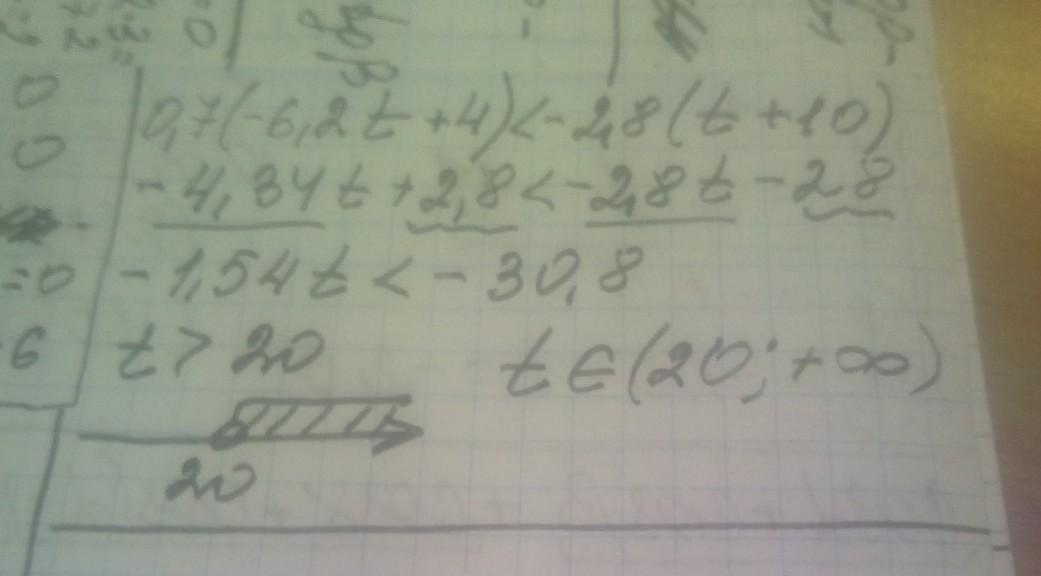 0,7(-6,2t+4)<-2,8(t+10)
-4,34t+2,8<-2,8t-28
-1,54t<-30,8
t>20 t∈(20;+∞)
20
0
0
=0
6